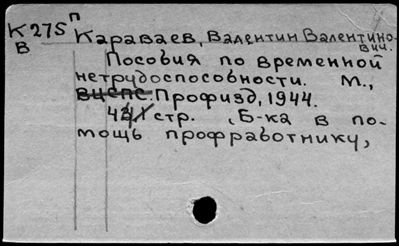 К275п Караваев, Валентин Валентино-
В вич.
Пособия по временной
нетрудоспособности. М.,
ВЦСПС. Профизд, 1944.
стр. (Б-ка в по-
мощь профработнику,